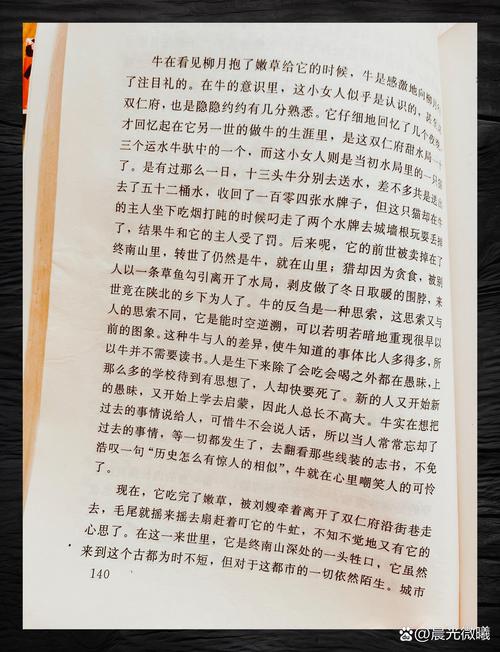 牛在看见柳月抱了嫩草给它的时候，牛是感激地向柳月
了注目礼的。在牛的意识里，这小女人似乎是认识的，甚至
双仁府，也是隐隐约约有几分熟悉。它仔细地回忆了几个夜晚
才回忆起在它另一世的做牛的生涯里，是这双仁府甜水局一十
三个运水牛驮中的一个，而这小女人则是当初水局里的一只猫
了。是有过那么一日，十三头牛分别去送水，差不多共是送出
去了五十二桶水，收回了一百零四张水牌子，但这只猫却在牛
的主人坐下吃烟打盹的时候叼走了两个水牌去城墙根玩耍丢掉
了，结果牛和它的主人受了罚。后来呢，它的前世被卖掉在了
终南山里，转世了仍然是牛，就在山里；猎却因为贪食，被别
人以一条草鱼勾引离开了水局，剥皮做了冬日取暖的围脖，来
世竟在陕北的乡下为人了。牛的反刍是一种思索，这思索又与
人的思索不同，它是能时空逆溯，可以若明若暗地重现很早以
前的图象。这种牛与人的差异，使牛知道的事体比人多得多，所
以牛并不需要读书。人是生下来除了会吃会喝之外都在愚昧，上
那么多的学校待到有思想了，人却快要死了。新的人又开始新
的愚昧，又开始上学去启蒙，因此人总长不高大。牛实在想把
过去的事情说给人，可惜牛不会说人话，所以当人常常忘却了
过去的事情，等一切都发生了，去翻看那些线装的志书，不免
浩叹一句“历史怎么有惊人的相似”，牛就在心里嘲笑人的可怜
了。
现在，它吃完了嫩草，被刘嫂牵着离开了双仁府沿街巷走
去，毛尾就摇来摇去扇赶着叮它的牛虻，不知不觉地又有它的
心思了。在这一来世里，它是终南山深处的一头牲口，它虽然
来到这个古都为时不短，但对于这都市的一切依然陌生。城市
140
晨光微曦